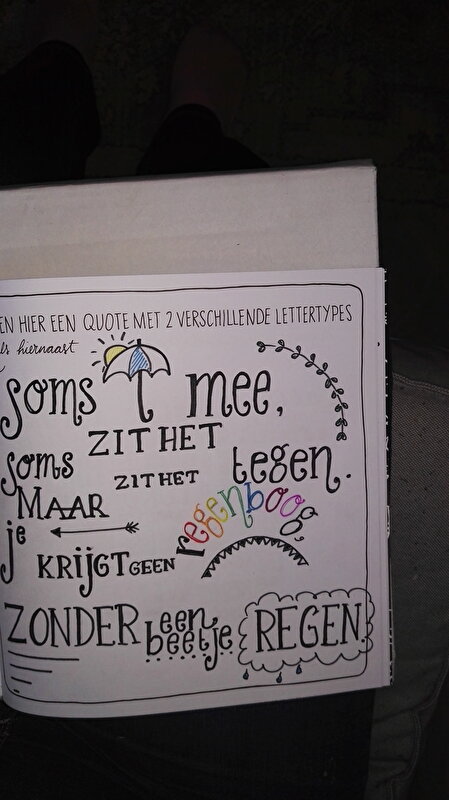 EN HIER EEN QUOTE MET 2 VERSCHILLENDE LETTERTYPES
ls hiernaast
soms 't mee,
ZIT HET
soms ZIT HET tegen.
MAAR
je KRIJGT GEEN regenboog,
ZONDER een beetje REGEN.